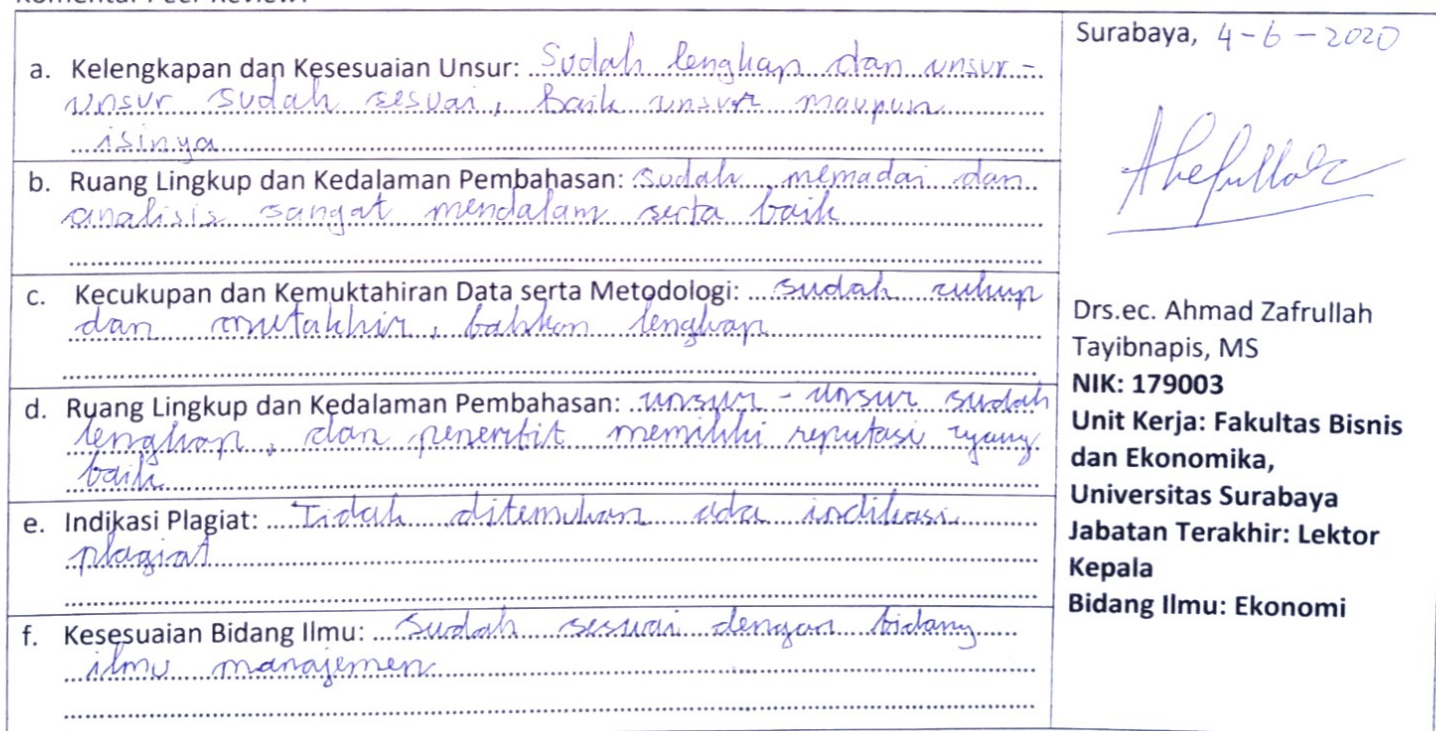 Komentar Peer Review:
a. Kelengkapan dan Kesesuaian Unsur: Sudah lengkap dan unsur-
unsur sudah sesuai, Baik unsur maupun
isinya
b. Ruang Lingkup dan Kedalaman Pembahasan: Sudah memadai dan
analisis sangat mendalam serta baik
c. Kecukupan dan Kemuktahiran Data serta Metodologi: sudah cukup
dan mutakhir, bahkan lengkap
d. Ruang Lingkup dan Kedalaman Pembahasan: unsur - unsur sudah
lengkap, dan penerbit memiliki reputasi yang
baik
e. Indikasi Plagiat: Tidak ditemukan ada indikasi
plagiat
f. Kesesuaian Bidang Ilmu: Sudah sesuai dengan bidang
ilmu manajemen
Surabaya, 4-6-2020
Drs.ec. Ahmad Zafrullah
Tayibnapis, MS
NIK: 179003
Unit Kerja: Fakultas Bisnis
dan Ekonomika,
Universitas Surabaya
Jabatan Terakhir: Lektor
Kepala
Bidang Ilmu: Ekonomi